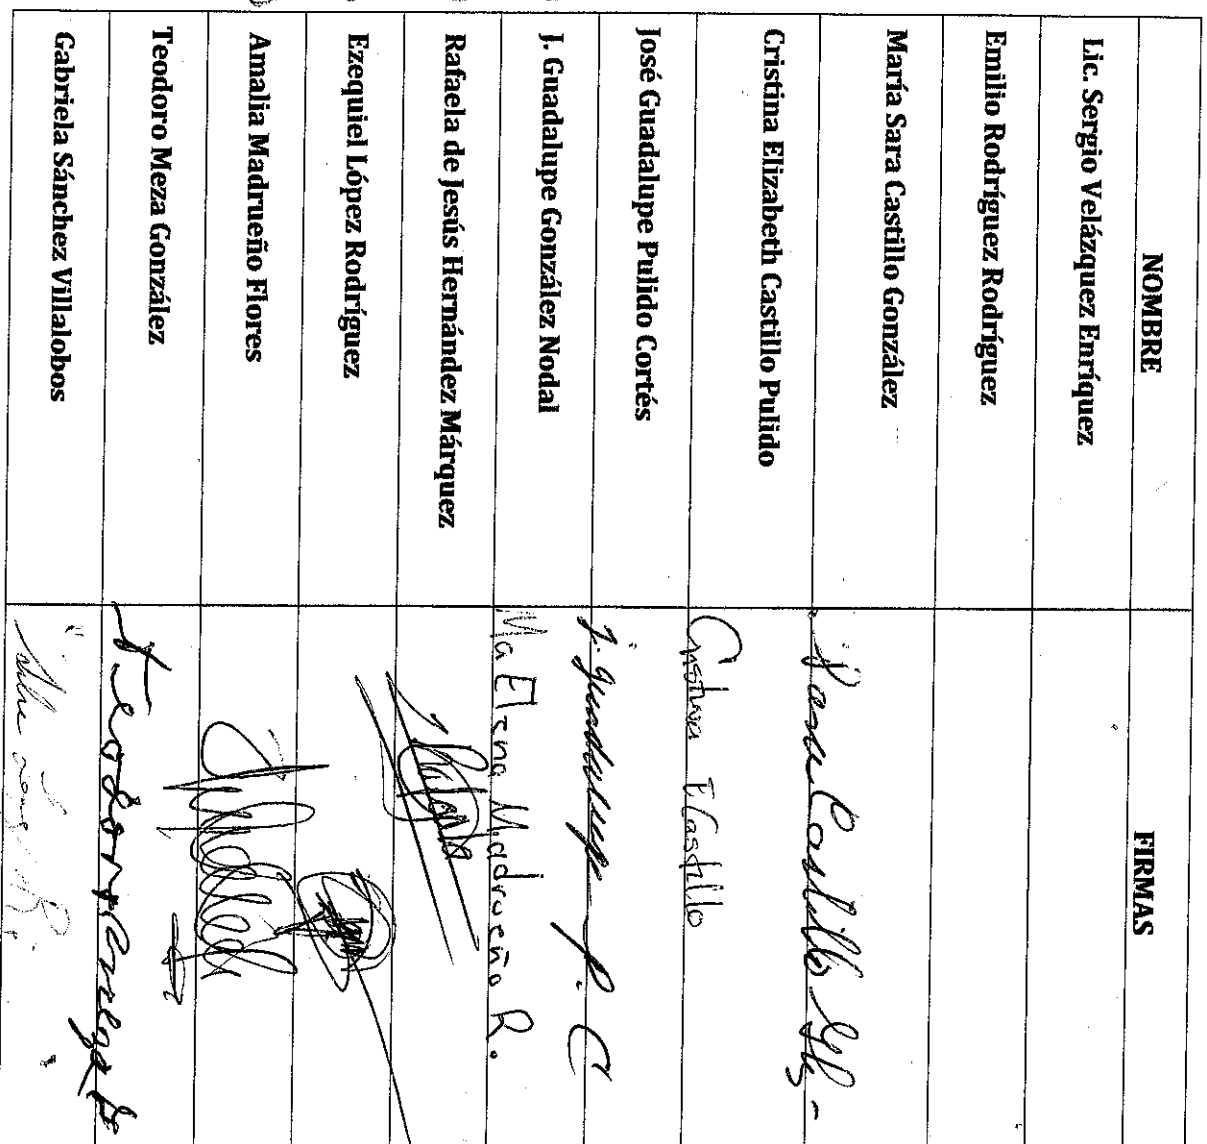 NOMBRE FIRMAS
Lic. Sergio Velázquez Enríquez
Emilio Rodríguez Rodríguez
María Sara Castillo González Sara Castillo Glz-
Cristina Elizabeth Castillo Pulido Cristina E Castillo
José Guadalupe Pulido Cortés J. guadalupe P. C
J. Guadalupe González Nodal Ma Elena Madrueño R.
Rafaela de Jesús Hernández Márquez Rafaela
Ezequiel López Rodríguez
Amalia Madrueño Flores
Teodoro Meza González Teodoro
Gabriela Sánchez Villalobos